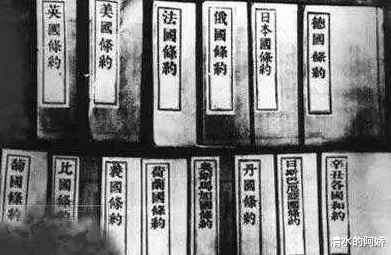 英國條約
美國條約
法國條約
俄國條約
日本國條約
德國條約
葡國條約
比國條約
義國條約
荷蘭國條約
奧斯馬加國條約
丹國條約
日斯巴尼亞國條約
辛丑各國和約
清水的阿娇